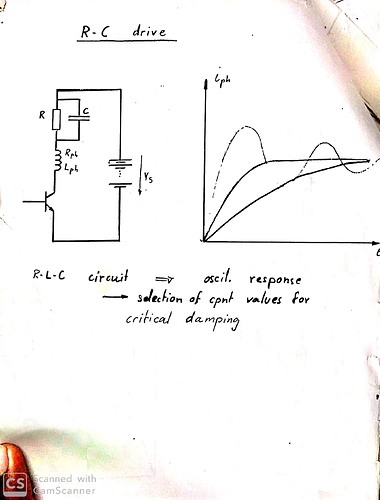 R-C drive
R
C
Rph
Lph
Vs
iph
t
R-L-C circuit ⇒ oscil. response
→ selection of cpnt values for
critical damping
CS Scanned with
CamScanner